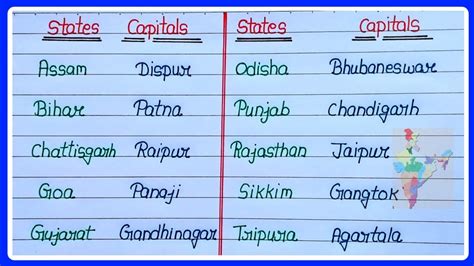 States Capitals States Capitals
Assam Dispur Odisha Bhubaneswar
Bihar Patna Punjab Chandigarh
Chattisgarh Raipur Rajasthan Jaipur
Goa Panaji Sikkim Gangtok
Gujarat Gandhinagar Tripura Agartala